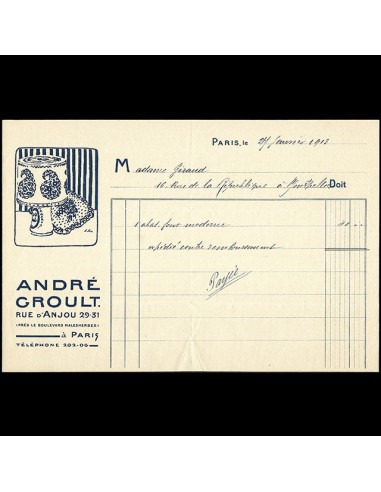 PARIS, le 27 Janvier 1913
Madame Giraud
16 Rue de la République à Doit
1 abat-jour moderne 40
expédié contre remboursement
Payé
ANDRÉ
GROULT.
RUE D'ANJOU 29-31
(PRÈS LE BOULEVARD MALESHERBES)
à PARIS
TÉLÉPHONE 202-06